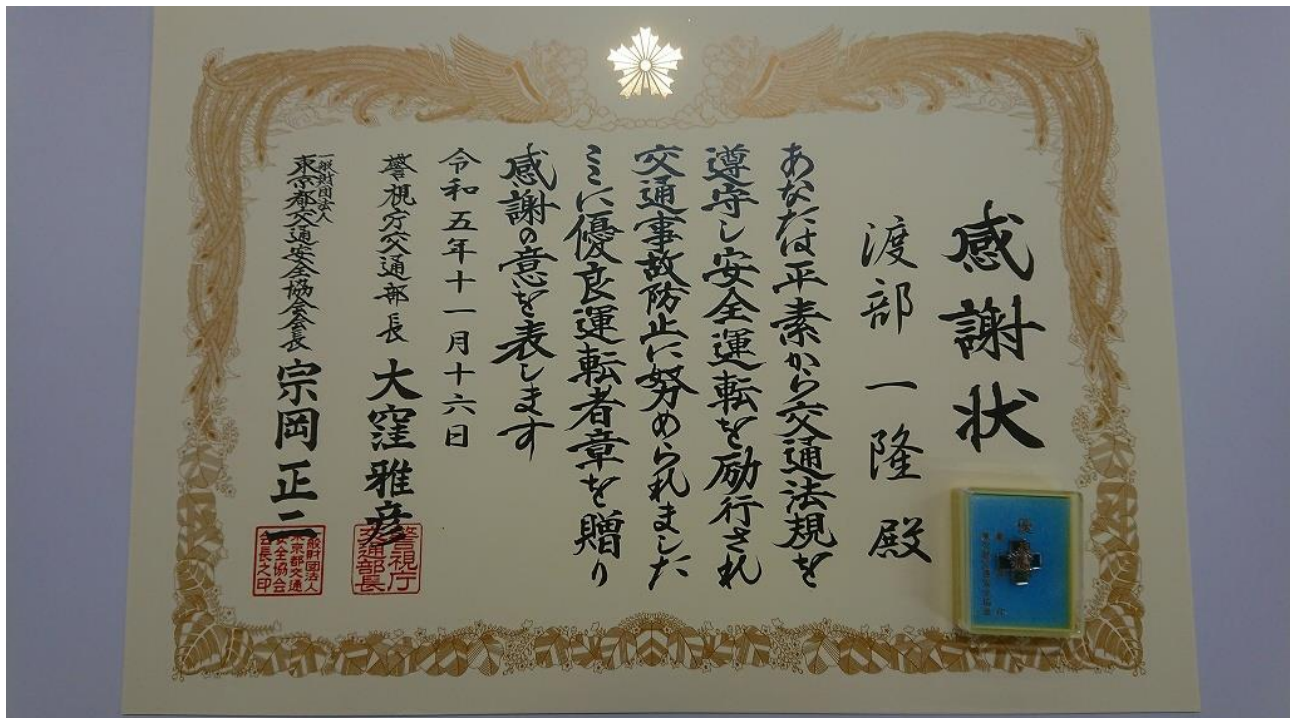 感謝状
渡部一隆殿
あなたは平素から交通法規を
遵守し安全運転を励行され
交通事故防止に努められました
ここに優良運転者章を贈り
感謝の意を表します
令和五年十一月十六日
警視庁交通部長 大窪雅彦
警視庁
交通部長
一般財団法人
東京都交通安全協会会長 宗岡正二
一般財団法人
東京都交通
安全協会
会長之印
優